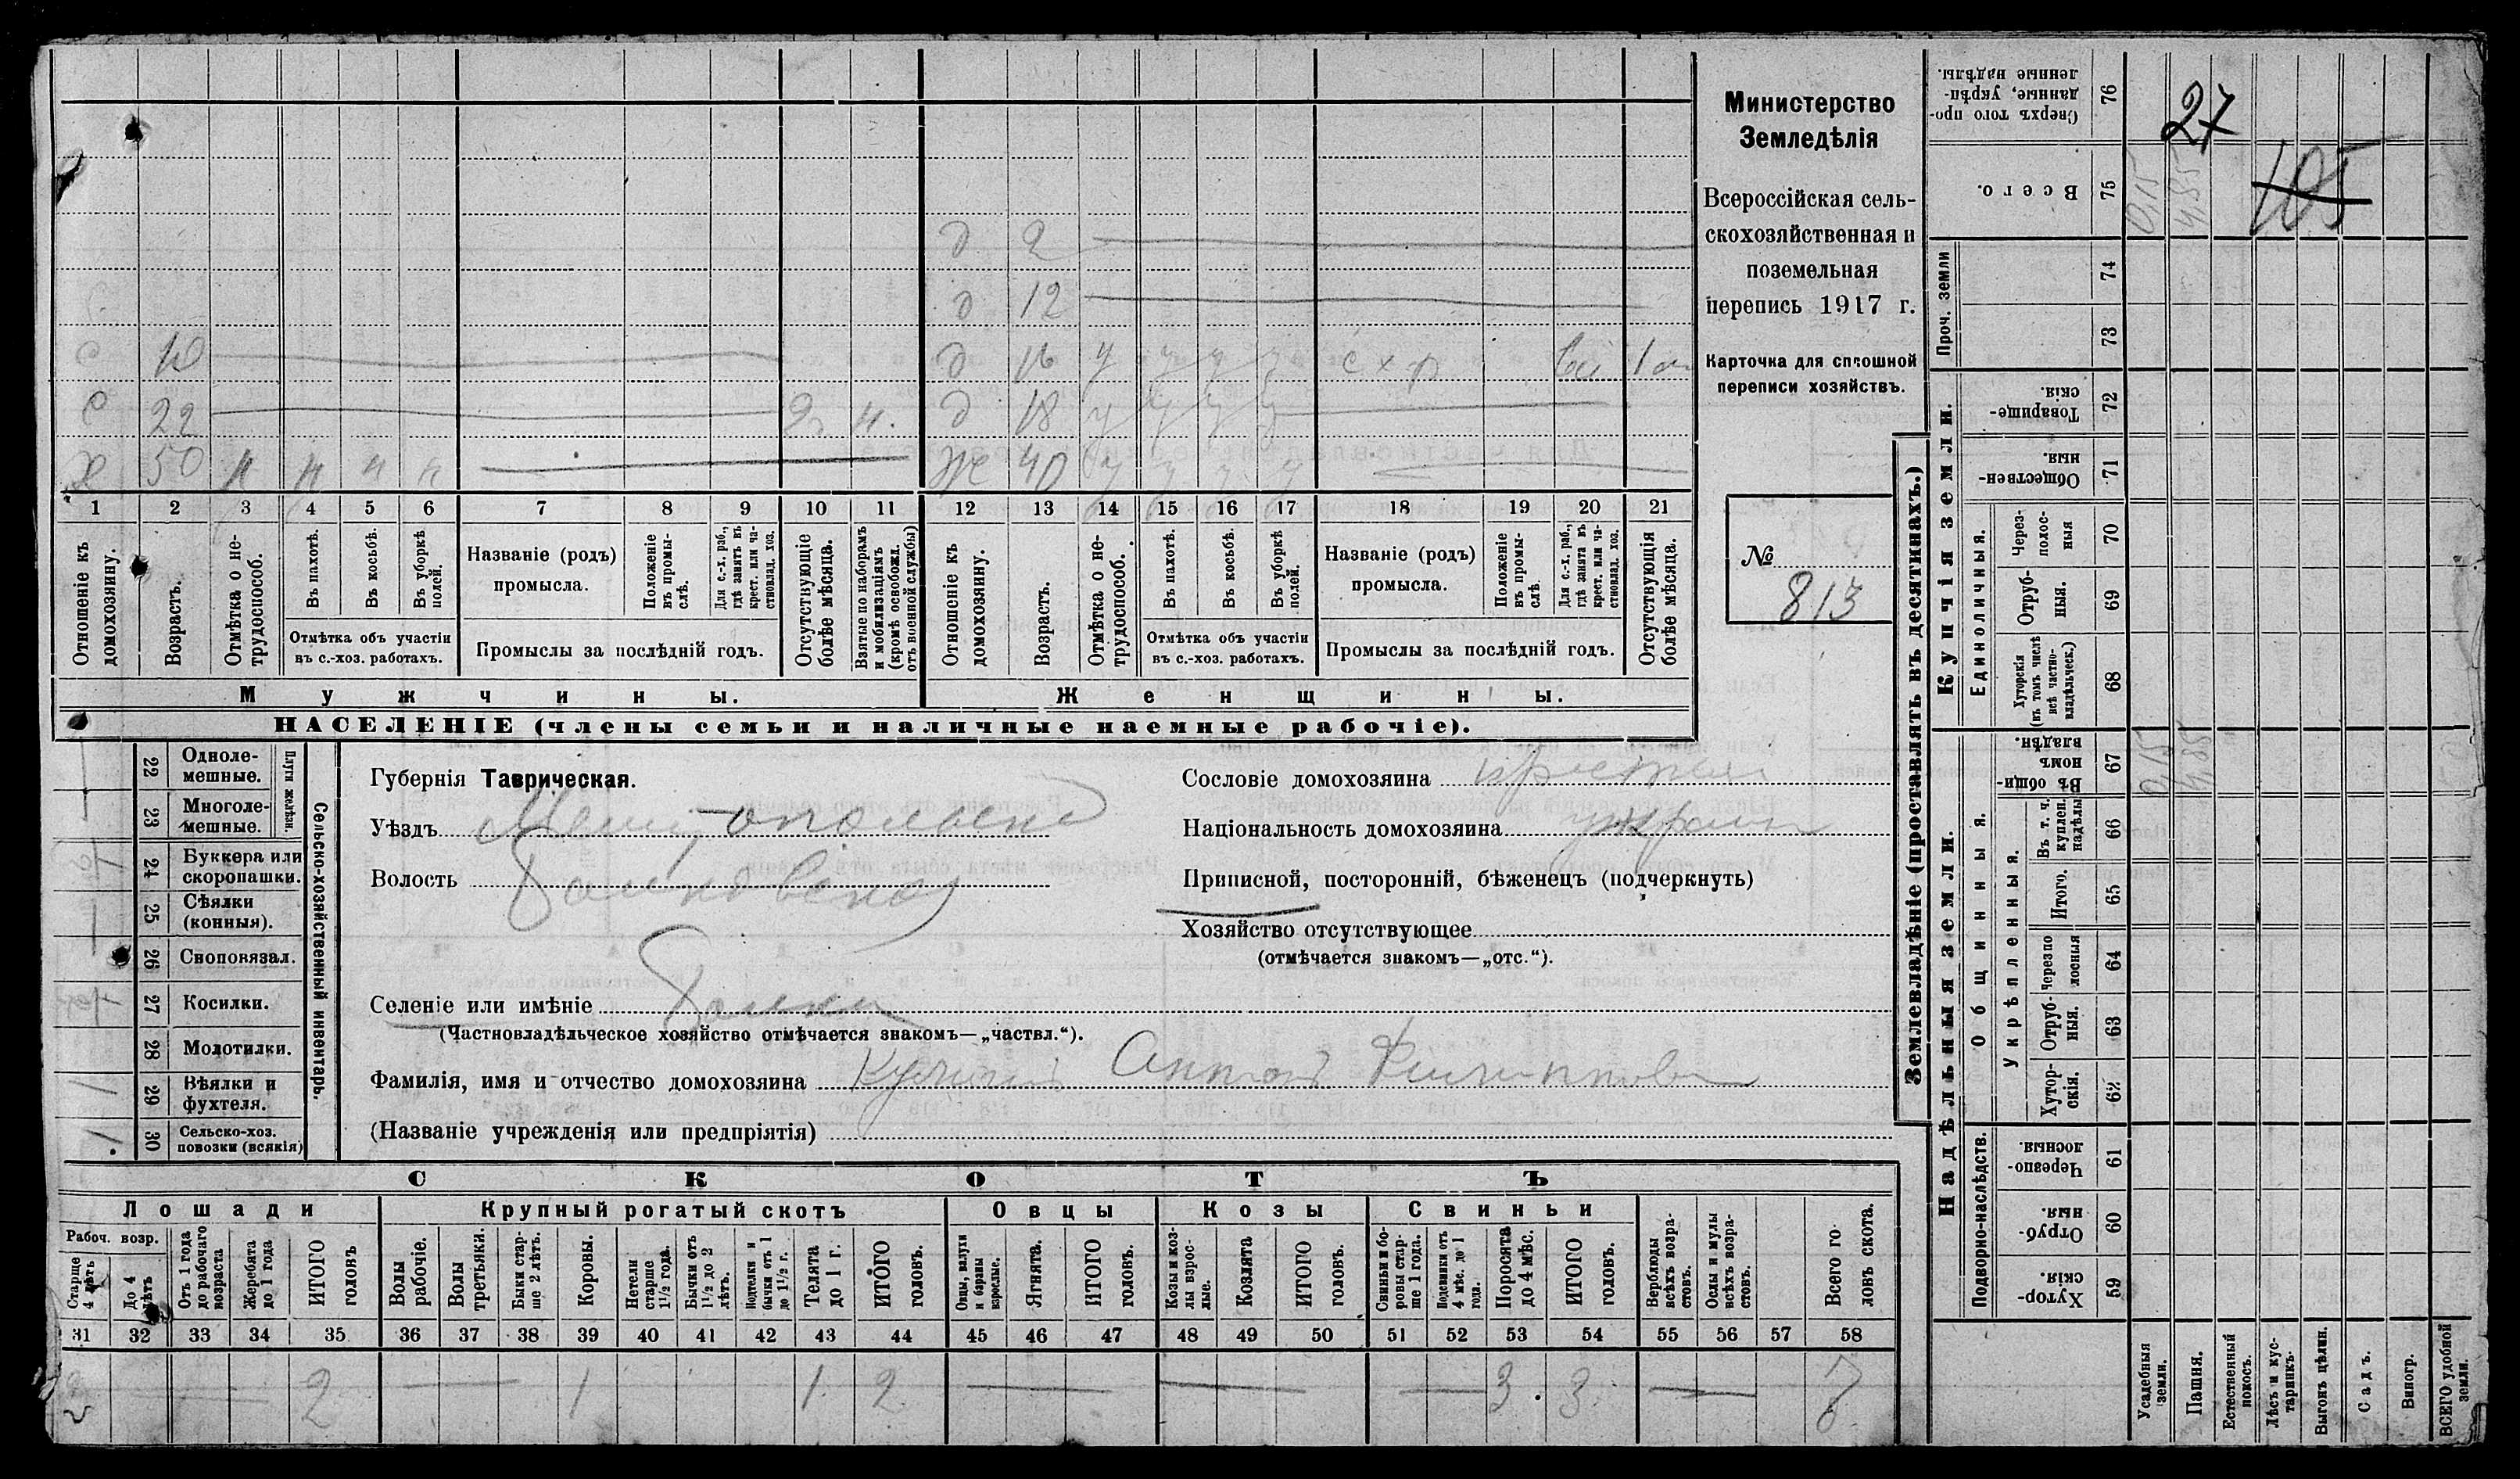 Министерство
Земледѣлія
Всероссійская сель-
скохозяйственная и
поземельная
перепись 1917 г.
Карточка для сплошной
переписи хозяйствъ.
№
813
д 2
д 12
с 10 д 16 у у у у с х р 1
с 22 н. д 18 у у у у
Х 50 н н н н Ж 40 у у у у
1 2 3 4 5 6 7 8 9 10 11 12 13 14 15 16 17 18 19 20 21
Отношеніе къ домохозяину.
Возрастъ.
Отмѣтка о не-трудоспособ.
Въ пахотѣ.
Въ косьбѣ.
Въ уборкѣ полей.
Отмѣтка объ участіи
въ с.-хоз. работахъ.
Названіе (родъ)
промысла.
Положеніе въ промы-слѣ.
Для с.-х. раб., гдѣ занятъ въ крест. или ча-стновлад. хоз.
Промыслы за послѣдній годъ.
Отсутствующіе болѣе мѣсяца.
Взятые по наборамъ и мобилизаціямъ (кромѣ освобожд. отъ военной службы)
Отношеніе къ домохозяину.
Возрастъ.
Отмѣтка о не-трудоспособ.
Въ пахотѣ.
Въ косьбѣ.
Въ уборкѣ полей.
Отмѣтка объ участіи
въ с.-хоз. работахъ.
Названіе (родъ)
промысла.
Положеніе въ промы-слѣ.
Для с.-х. раб., гдѣ занята въ крест. или ча-стновлад. хоз.
Промыслы за послѣдній годъ.
Отсутствующія болѣе мѣсяца.
Мужчины. Женщины.
НАСЕЛЕНІЕ (члены семьи и наличные наемные рабочіе).
22 Однолемешные.
23 Многолемешные.
Плуги желѣзн.
24 Буккера или скоропашки.
25 Сѣялки (конныя).
26 Сноповязал.
27 Косилки.
28 Молотилки.
29 Вѣялки и фухтеля. 1
30 Сельско-хоз. повозки (всякія) 1
Сельско-хозяйственный инвентарь.
Губернія Таврическая.
Уѣздъ Мелитопольскій
Волость Балковская
Селеніе или имѣніе Балки
(Частновладѣльческое хозяйство отмѣчается знакомъ—„частвл.“).
Фамилія, имя и отчество домохозяина Антонъ Филиппов
(Названіе учрежденія или предпріятія)
Сословіе домохозяина крестьян
Національность домохозяина украин
Приписной, посторонній, бѣженецъ (подчеркнуть)
Хозяйство отсутствующее
(отмѣчается знакомъ—„отс.“).
СКОТЪ
Лошади Крупный рогатый скотъ Овцы Козы Свиньи
Рабоч. возр.
Старше 4 лѣтъ
До 4 лѣтъ
Отъ 1 года до рабочаго возраста
Жеребята до 1 года
ИТОГО головъ
Волы рабочіе.
Волы третьяки.
Быки стар-ше 2 лѣтъ.
Коровы.
Нетели старше 1½ года.
Бычки отъ 1½ до 2 лѣтъ.
Подтелки и бычки отъ 1 до 1½ г.
Телята до 1 г.
ИТОГО головъ.
Овцы, валухи и бараны взрослые.
Ягнята.
ИТОГО головъ.
Козы и коз-лы взрос-лые.
Козлята
ИТОГО головъ.
Свиньи и бо-ровы стар-ше 1 года.
Подсвинки отъ 4 мѣс. до 1 года.
Поросята до 4 мѣс.
ИТОГО головъ.
Верблюды всѣхъ возра-стовъ.
Ослы и мулы всѣхъ возра-стовъ.
Всего го-ловъ скота.
31 32 33 34 35 36 37 38 39 40 41 42 43 44 45 46 47 48 49 50 51 52 53 54 55 56 57 58
2 2 1 1 2 3 3 7
Землевладѣніе (проставлять въ десятинахъ.)
Надѣльныя земли. Купчія земли.
Подворно-наслѣдств.
Общинныя.
Укрѣпленныя.
Единоличныя.
Проч. земли
76 Сверхъ того проданные, укрѣпленные надѣлы. 27
75 Всего. 0,15 4,85 105
74
73
72 Товарищескія
71 Общественныя
70 Через-полос-ныя
69 Отруб-ныя.
68 Хуторскія (въ томъ числѣ всѣ частно-владѣльческ.)
67 Въ общинномъ владѣн. 0,15 4,85
66 Въ т. ч. куплен. надѣлы
65 Итого.
64 Черезполосныя
63 Отруб-ныя.
62 Хутор-скія.
61 Черезполосныя
60 Отрубныя.
59 Хуторскія.
Усадебныя земли.
Пашня.
Естественный покосъ.
Лѣсъ и кус-тарникъ.
Выгонъ цѣлин.
Садъ.
Виногр.
ВСЕГО удобной земли.